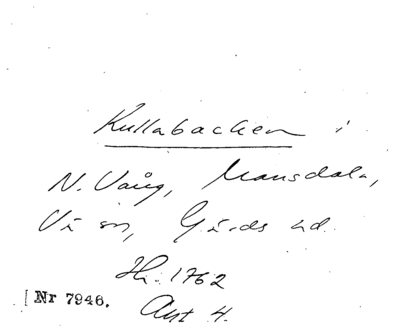 Kullabacken i
N. Vång, Mansdala,
Vä sn, Gärds hd.
Hi. 1762
Nr 7946.
Akt 4.